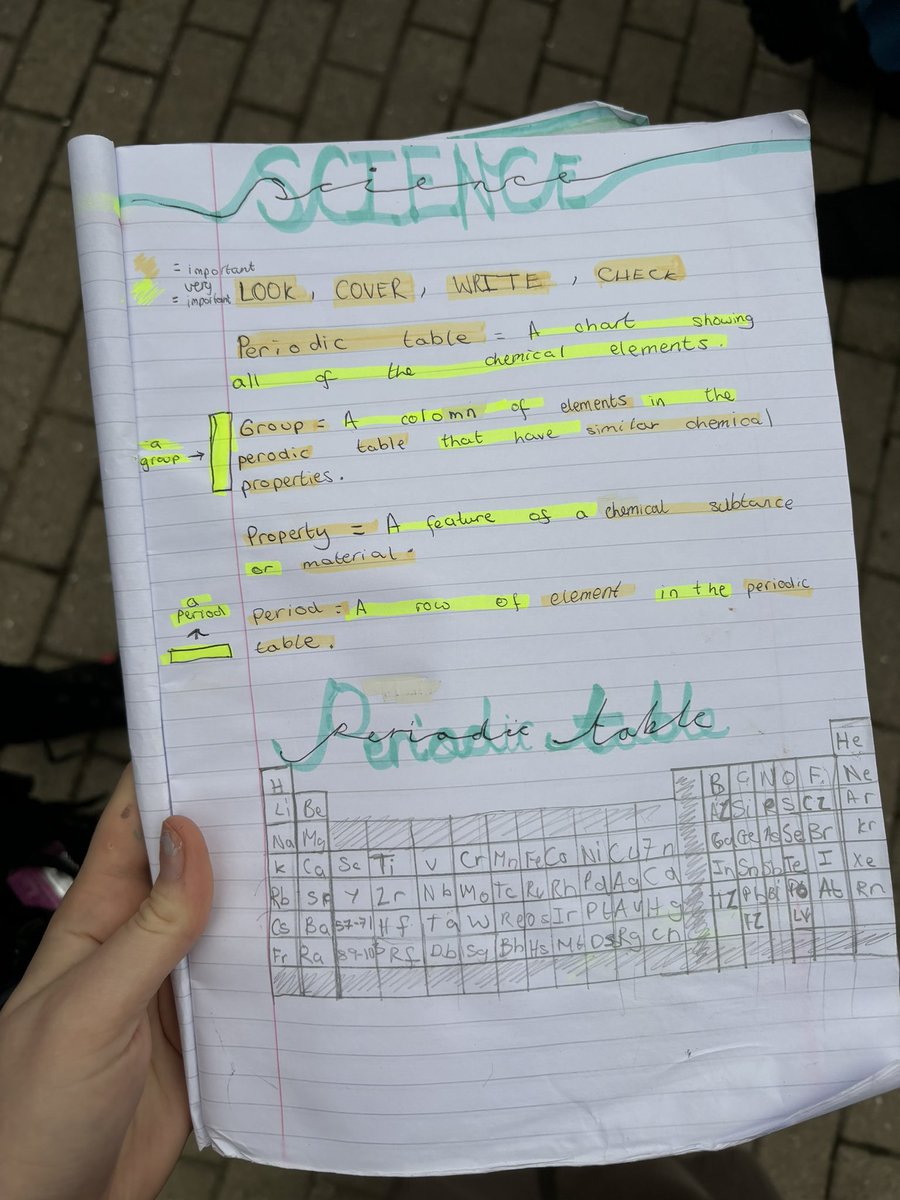 SCIENCE
science
= important
very
= important
LOOK, COVER, WRITE, CHECK
Periodic table = A chart showing
all of the chemical elements.
Group = A colomn of elements in the
perodic table that have similar chemical
properties.
a
group →
Property = A feature of a chemical subtance
or material.
a
Period
Period = A row of element in the periodic
table.
Periodic table
Periodic table
He
H B C N O F Ne
Li Be Si S CZ Ar
Na Mg Ga Ge As Se Br Kr
K Ca Sc Ti V Cr Mn Fe Co Ni Cu Zn In Sn Sb Te I Xe
Rb Sr Y Zr Nb Mo Tc Ru Rh Pd Ag Cd TZ Pb Bi Po At Rn
Cs Ba 57-71 Hf Ta W Re Os Ir Pt Au Hg FZ LV
Fr Ra Rf Db Sg Bh Hs Mt Ds Rg Cn